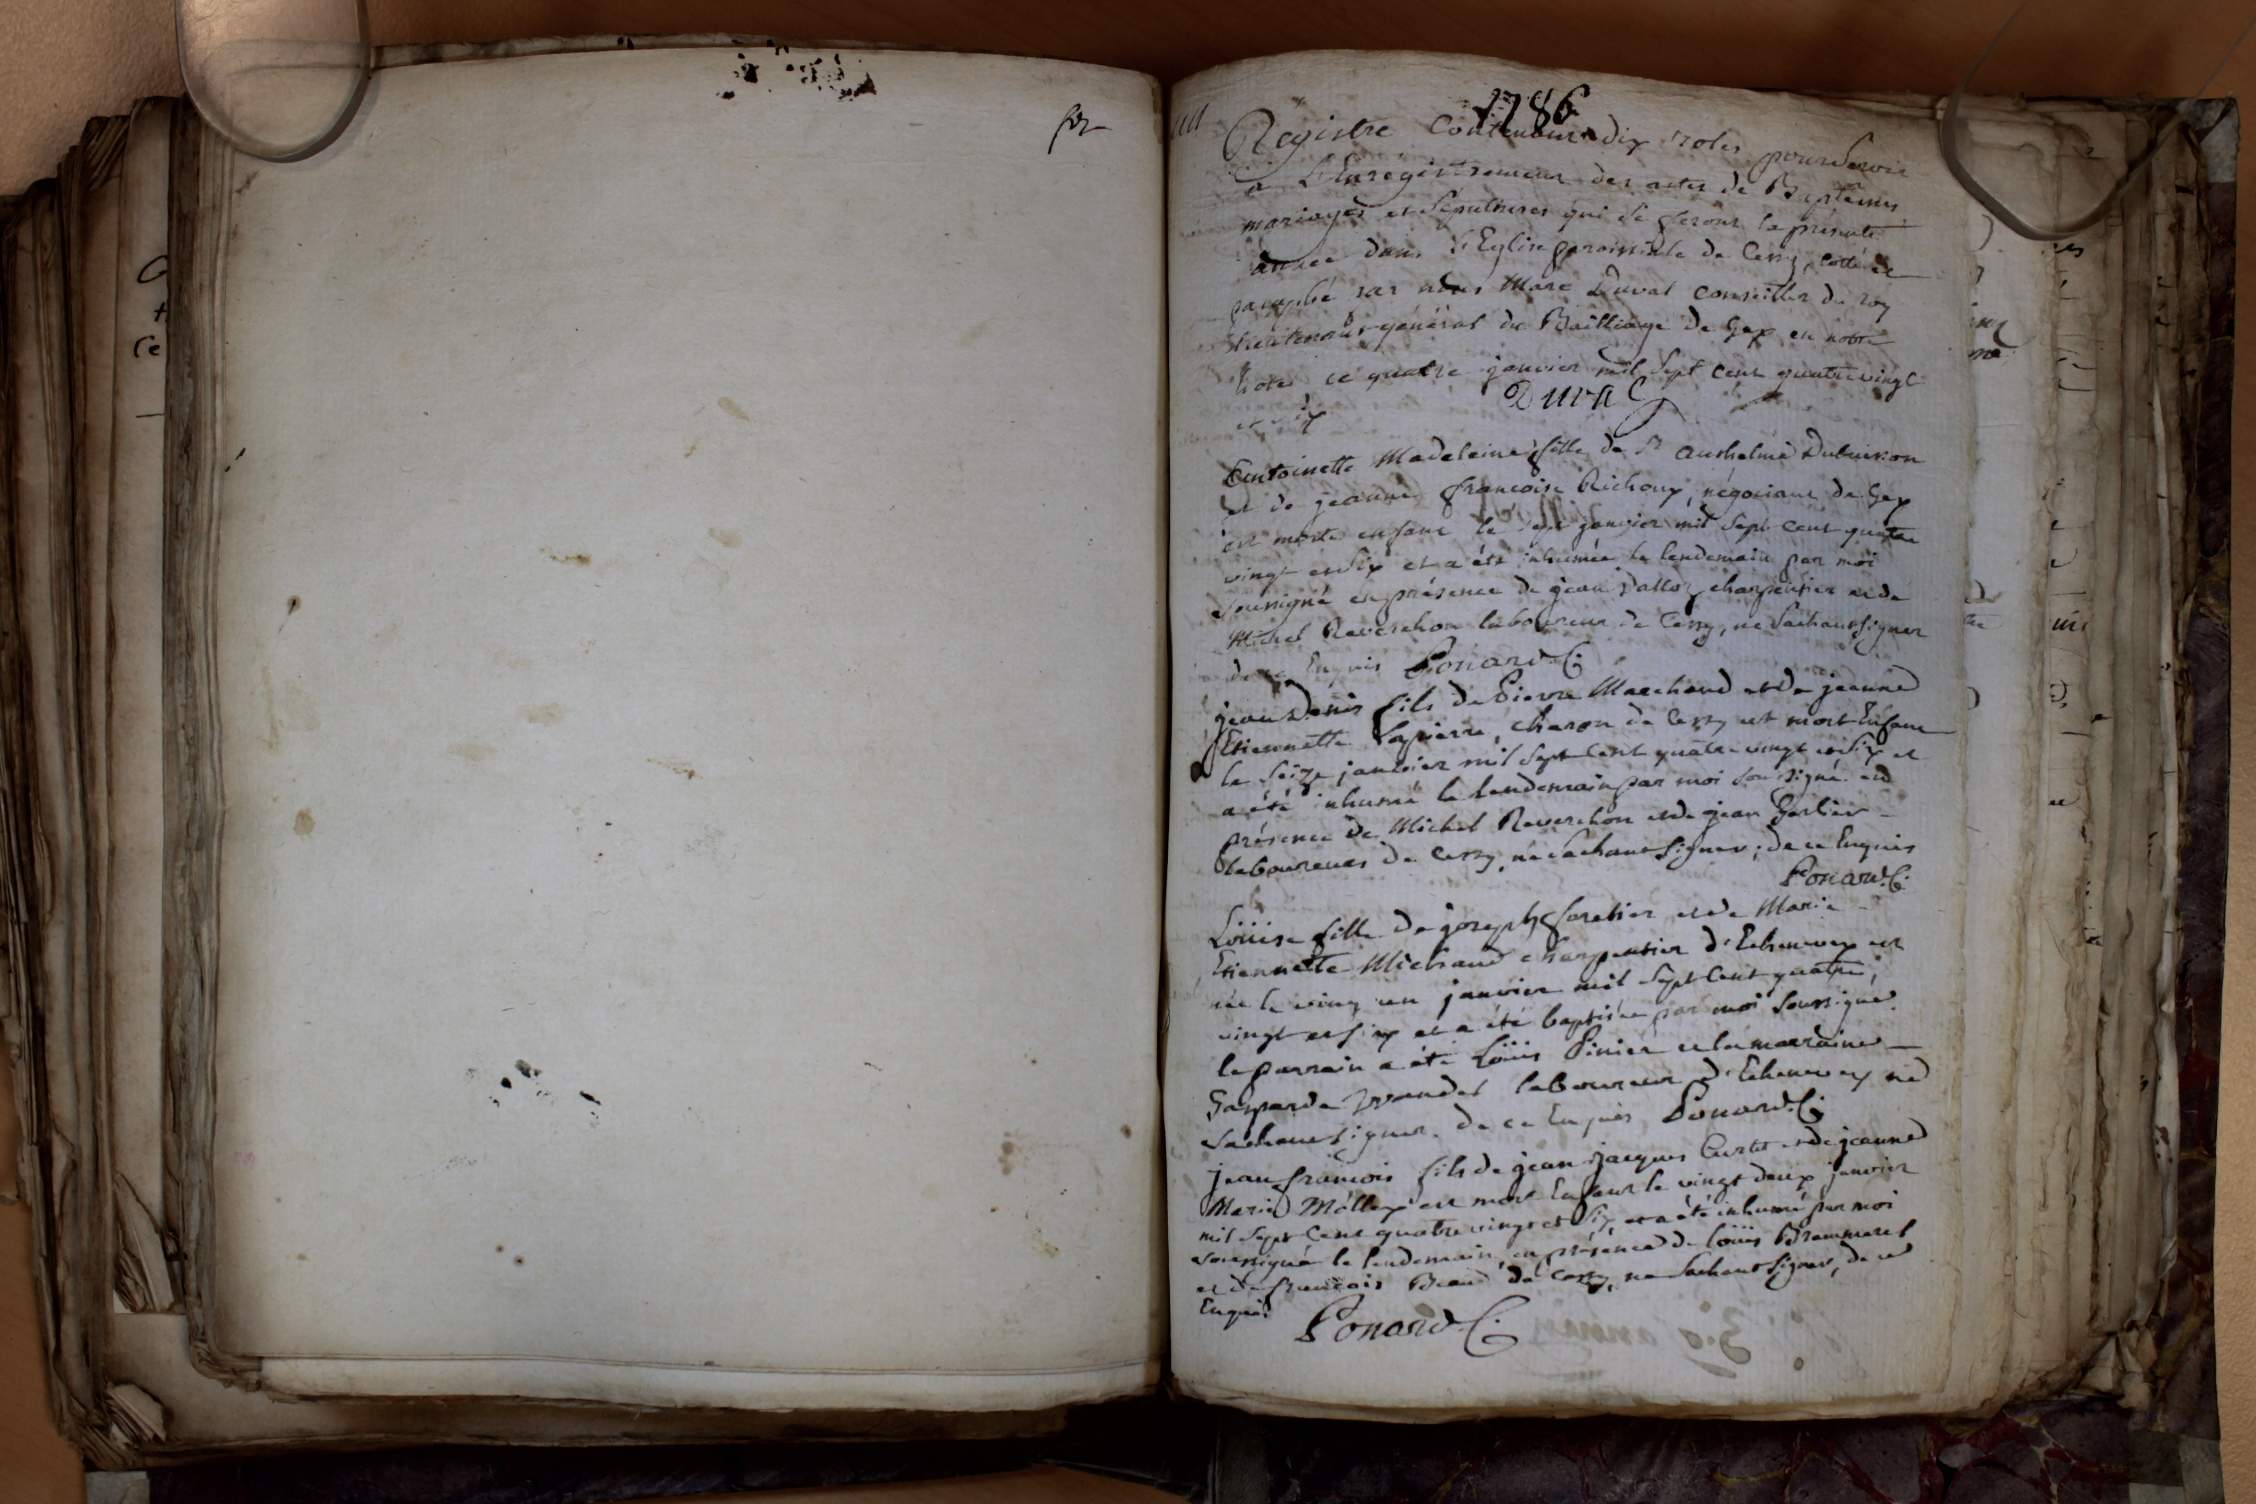 1786
Registre Contenant dix roles pour servir
a L'Enregistrement des actes de Baptêmes
mariages et Sépultures qui se feront la présente
année dans l'Eglise paroissiale de Cessy, Cotté et
paraphé par nous Marc Duval Conseiller du roy
Lieutenant général du Bailliage de Gex en notre
hotel ce quatre janvier mil sept cent quatrevingt
et six
Duval
Antoinette Madelaine fille de Sr Anthelme Dubuisson
et de jeanne francoise Richoux, négociant de Gex
est morte enfant le sept janvier mil sept cent quatre
vingt et six et a été inhumée le lendemain par moi
soussigné en présence de jean Dalloz charpentier et de
Michel Reverchon laboureur de Cessy, ne Sachant signer
de ce Enquis Ponard C:
jean Denis fils de Pierre Marchand et de jeanne
Etiennette Lapierre, charon de Cessy est mort Enfant
le seize janvier mil sept cent quatre vingt et six et
a été inhumé le lendemain par moi soussigné en
présence de Michel Reverchon et de jean Gerlier
laboureurs de Cessy ne sachant signer; de ce Enquis
Ponard C:
Loüise fille de joseph foretier et de Marie
Etiennette Michaud charpentier d'Echenevex est
née le vingt un janvier mil sept cent quatre
vingt et six et a été baptisée par moi soussigné
le parrain a été Loüis Pinier et la marraine
Gasparde laboureur d'Echenevex ne
sachant signer. de ce Enquis Ponard C:
jean françois fils de jean jacques Curtet et de jeanne
Marie Mollex est mort Enfant le vingt deux janvier
mil sept cent quatre vingt et six et a été inhumé par moi
soussigné le lendemain, en présence de loüis Brammerel
et de françois Beaud de Cessy, ne sachant signer, de ce
Enquis Ponard C: